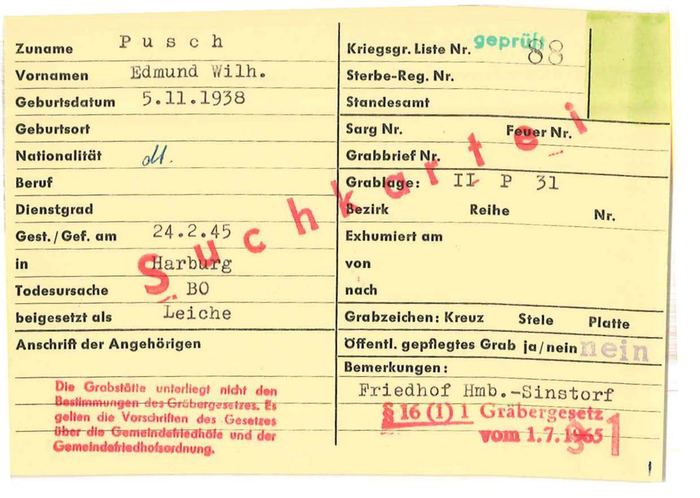 Zuname Pusch
Vornamen Edmund Wilh.
Geburtsdatum 5.11.1938
Geburtsort
Nationalität dt.
Beruf
Dienstgrad
Gest./Gef. am 24.2.45
in Harburg
Todesursache BO
beigesetzt als Leiche
Anschrift der Angehörigen
Die Grabstätte unterliegt nicht den
Bestimmungen des Gräbergesetzes. Es
gelten die Vorschriften des Gesetzes
über die Gemeindefriedhöfe und der
Gemeindefriedhofsordnung.
Suchkartei
Kriegsgr. Liste Nr. geprüft 88
Sterbe-Reg. Nr.
Standesamt
Sarg Nr. Feuer Nr.
Grabbrief Nr.
Grablage: II P 31
Bezirk Reihe Nr.
Exhumiert am
von
nach
Grabzeichen: Kreuz Stele Platte
Öffentl. gepflegtes Grab ja/nein nein
Bemerkungen:
Friedhof Hmb.-Sinstorf
§ 16 (1) 1 Gräbergesetz
vom 1.7.1965
§ 1